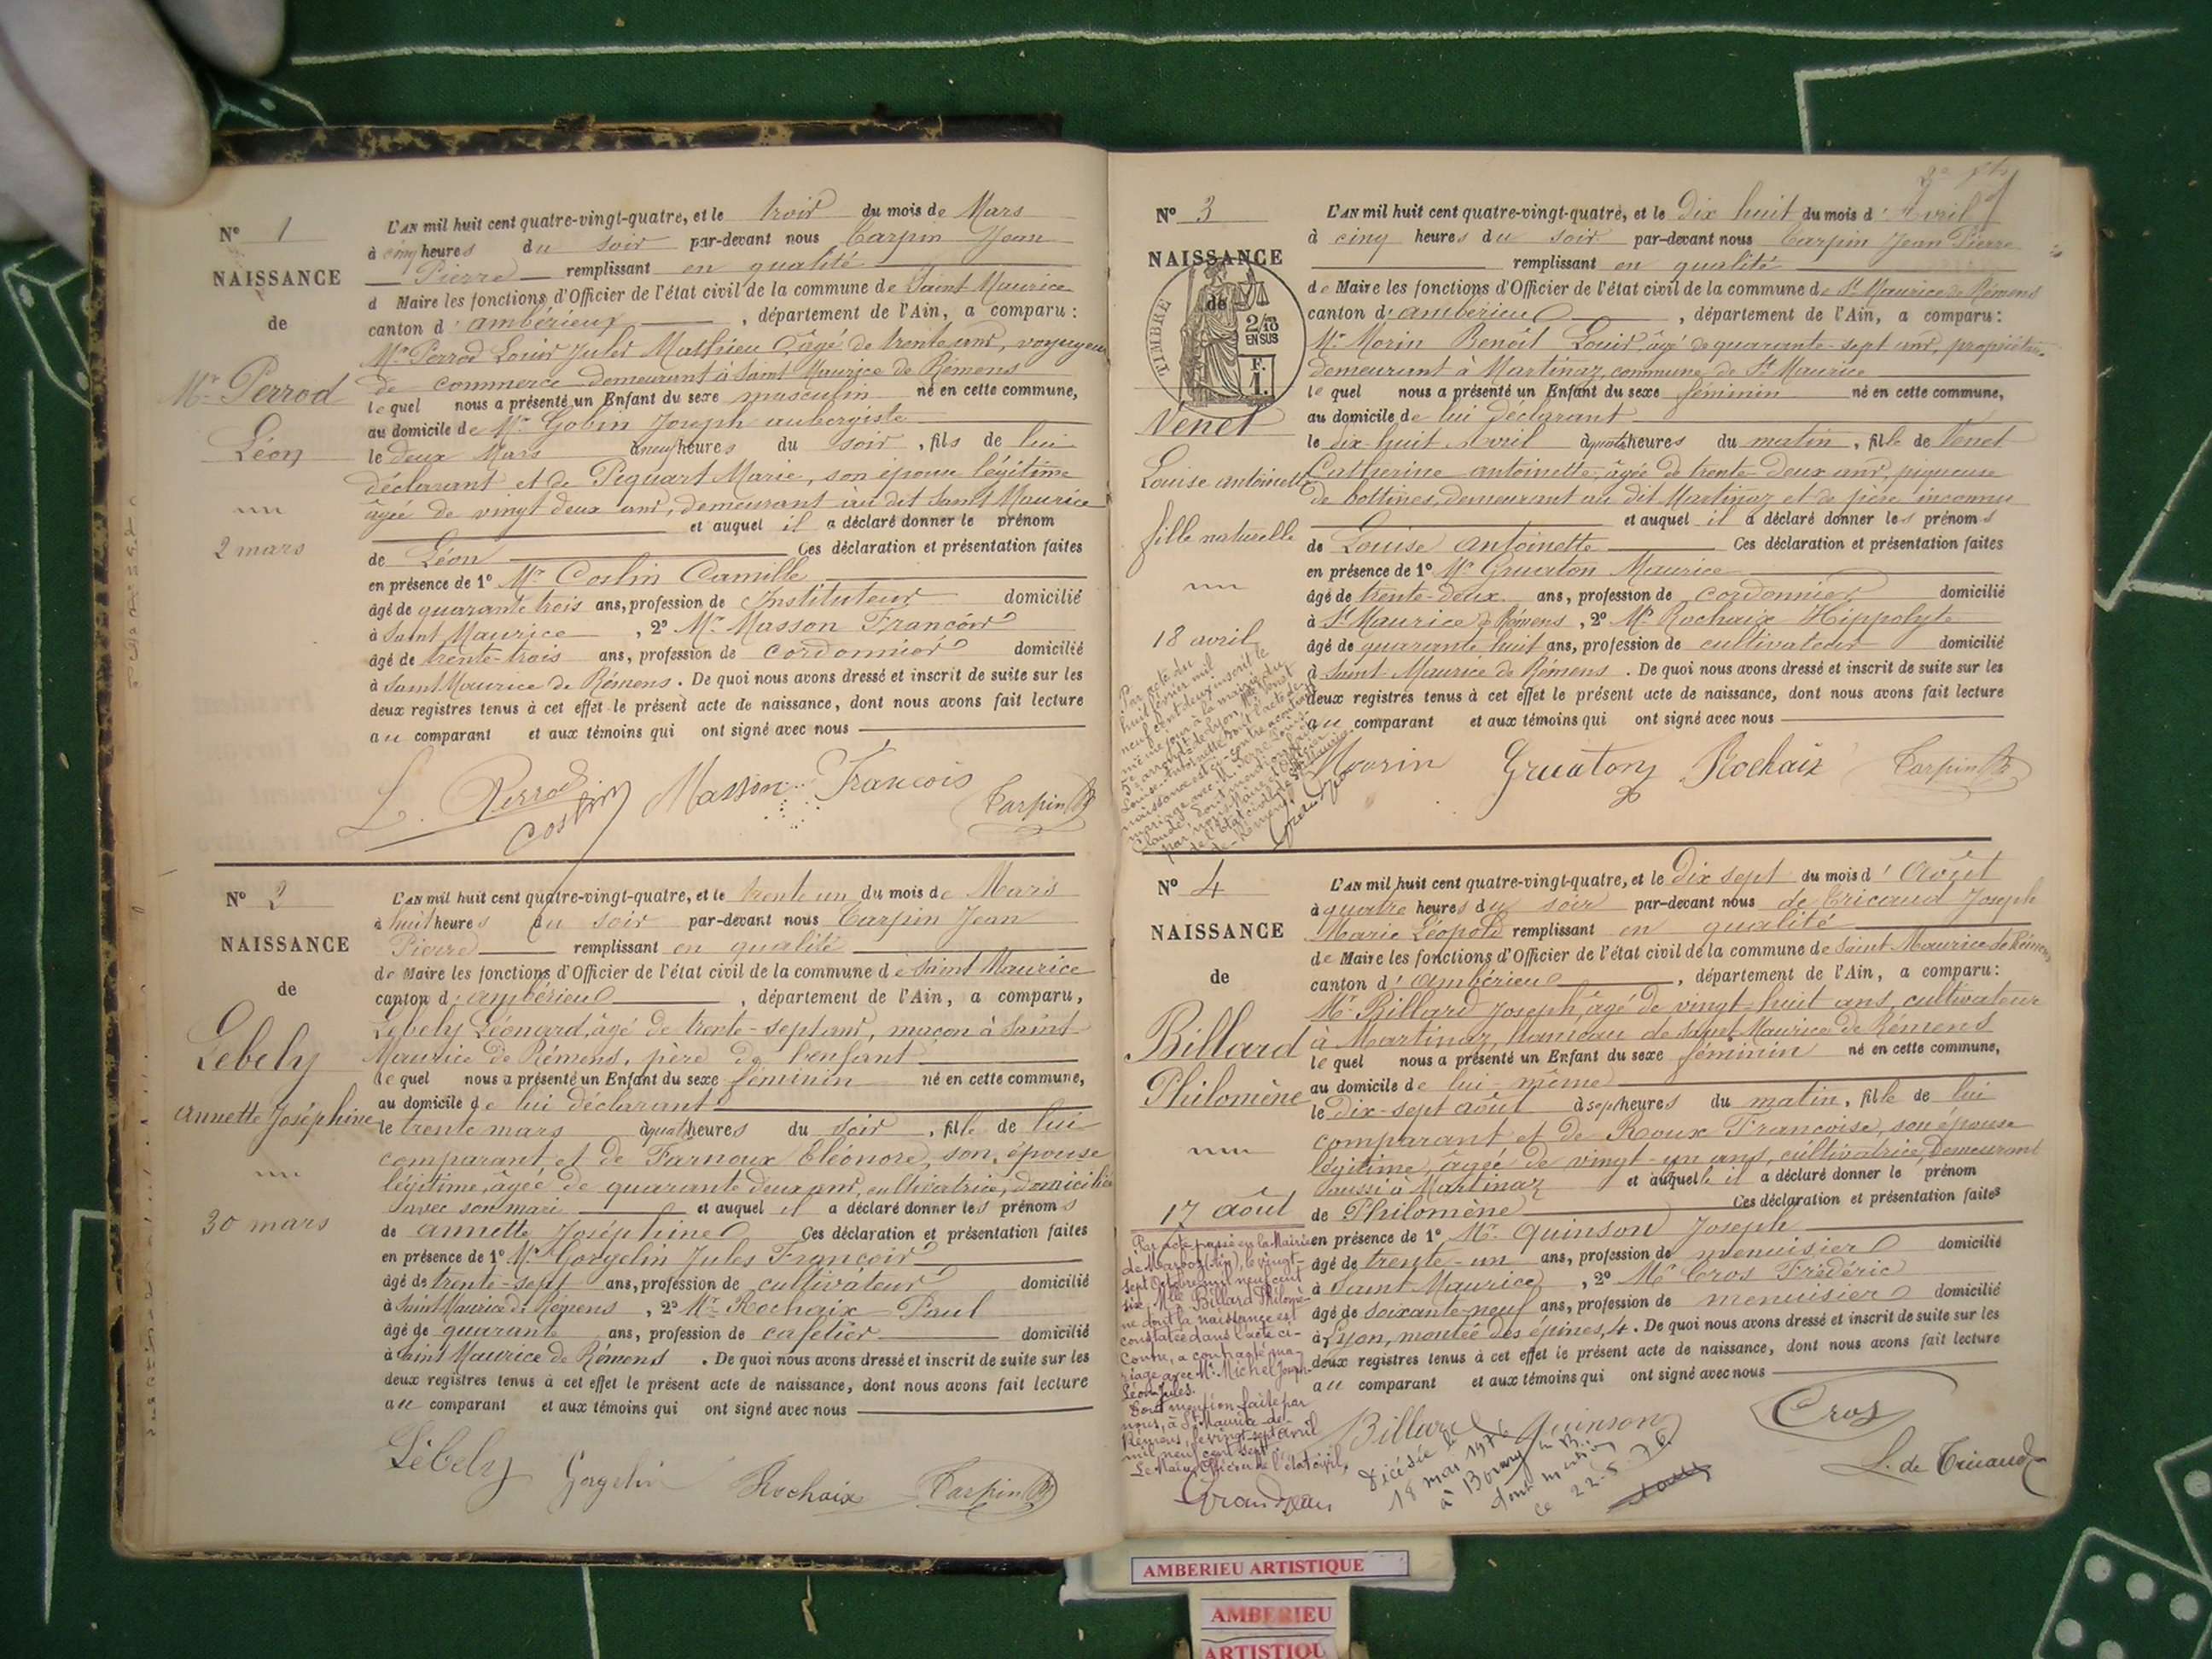 N° 1
NAISSANCE
de
Mr Perrod
Léon
2 mars
L'AN mil huit cent quatre-vingt-quatre, et le trois du mois de Mars
à cinq heures du soir par-devant nous Carpin Jean
Pierre remplissant en qualité
d Maire les fonctions d'Officier de l'état civil de la commune de Saint Maurice
canton d'ambérieux, département de l'Ain, a comparu :
Mr Perrod Louis Jules Mathieu, âgé de trente ans, voyageur
de commerce demeurant à Saint Maurice de Rémens
lequel nous a présenté un Enfant du sexe masculin né en cette commune,
au domicile de Mr Gobin Joseph aubergiste
le deux Mars à neuf heures du soir, fils de lui
déclarant et de Piquart Marie, son épouse légitime
agée de vingt deux ans, demeurant au dit Saint Maurice
et auquel il a déclaré donner le prénom
de Léon Ces déclaration et présentation faites
en présence de 1° Mr Costin Camille
âgé de quarante trois ans, profession de Instituteur domicilié
à Saint Maurice, 2° Mr Masson François
âgé de trente-trois ans, profession de cordonnier domicilié
à Saint Maurice de Rémens. De quoi nous avons dressé et inscrit de suite sur les
deux registres tenus à cet effet le présent acte de naissance, dont nous avons fait lecture
au comparant et aux témoins qui ont signé avec nous
L. Perrod Costin Masson François Carpin
N° 2
NAISSANCE
de
Lebely
annette Joséphine
30 mars
L'AN mil huit cent quatre-vingt-quatre, et le trente un du mois de Mars
à huit heures du soir par-devant nous Carpin Jean
Pierre remplissant en qualité
de Maire les fonctions d'Officier de l'état civil de la commune de Saint Maurice
canton d'ambérieu, département de l'Ain, a comparu,
Lebely Léonard, âgé de trente-sept ans, maçon à Saint
Maurice de Rémens, père de l'enfant
lequel nous a présenté un Enfant du sexe féminin né en cette commune,
au domicile de lui déclarant
le trente mars à quatre heures du soir, fille de lui
comparant et de Farnoux Eléonore, son épouse
légitime, âgée de quarante deux ans, cultivatrice, domiciliée
avec son mari et auquel il a déclaré donner les prénoms
de annette Joséphine Ces déclaration et présentation faites
en présence de 1° Mr Gorgelin Jules François
âgé de trente-sept ans, profession de cultivateur domicilié
à Saint Maurice de Rémens, 2° Mr Rochaix Paul
âgé de quarante ans, profession de cafetier domicilié
à Saint Maurice de Rémens. De quoi nous avons dressé et inscrit de suite sur les
deux registres tenus à cet effet le présent acte de naissance, dont nous avons fait lecture
au comparant et aux témoins qui ont signé avec nous
Lebely Gorgelin Rochaix Carpin
N° 3
NAISSANCE
de
TIMBRE
2/10
EN SUS
F.
1.
Venet
Louise antoinette
fille naturelle
18 avril
L'AN mil huit cent quatre-vingt-quatre, et le Dix huit du mois d'Avril
à cinq heures du soir par-devant nous Carpin Jean Pierre
remplissant en qualité
de Maire les fonctions d'Officier de l'état civil de la commune de St Maurice de Rémens
canton d'ambérieu, département de l'Ain, a comparu :
Mr Morin Benoît Louis, âgé de quarante-sept ans, propriétaire
demeurant à Martinaz, commune de St Maurice
lequel nous a présenté un Enfant du sexe féminin né en cette commune,
au domicile de lui déclarant
le dix-huit Avril à quatre heures du matin, fille de Venet
Catherine antoinette, âgée de trente-deux ans, piqueuse
de bottines, demeurant au dit Martinaz et de père inconnu
et auquel il a déclaré donner les prénoms
de Louise Antoinette Ces déclaration et présentation faites
en présence de 1° Mr Gruaton Maurice
âgé de trente-deux ans, profession de cordonnier domicilié
à St Maurice de Rémens, 2° Mr Rochaix Hippolyte
âgé de quarante huit ans, profession de cultivateur domicilié
à Saint Maurice de Rémens. De quoi nous avons dressé et inscrit de suite sur les
deux registres tenus à cet effet le présent acte de naissance, dont nous avons fait lecture
au comparant et aux témoins qui ont signé avec nous
Par acte du
huit février mil
neuf cent deux inscrit le
même jour à la mairie du
5e arrondt de Lyon, Mlle Venet
Louise Antoinette dont l'acte de
naissance est ci-contre a contracté
mariage avec M.
Claude. Dont mention faite
par nous, Maire, Officier
de l'Etat civil de St Maurice-
de-Rémens
Mourin Gruaton Rochaix Carpin
N° 4
NAISSANCE
de
Billard
Philomène
17 août
L'AN mil huit cent quatre-vingt-quatre, et le Dix sept du mois d'Août
à quatre heures du soir par-devant nous de Tricaud Joseph
Marie Léopold remplissant en qualité
de Maire les fonctions d'Officier de l'état civil de la commune de Saint-Maurice de Rémens
canton d'Ambérieu, département de l'Ain, a comparu :
Mr Billard Joseph, âgé de vingt-huit ans, cultivateur
à Martinaz, hameau de Saint Maurice de Rémens
lequel nous a présenté un Enfant du sexe féminin né en cette commune,
au domicile de lui-même
le dix-sept août à sept heures du matin, fille de lui
comparant et de Roux Françoise, son épouse
légitime, âgée de vingt-un ans, cultivatrice, demeurant
aussi à Martinaz et auquelle il a déclaré donner le prénom
de Philomène Ces déclaration et présentation faites
en présence de 1° Mr Quinson Joseph
âgé de trente-un ans, profession de menuisier domicilié
à Saint Maurice, 2° Mr Cros Frédéric
âgé de soixante-neuf ans, profession de menuisier domicilié
à Lyon, montée des épines, 4. De quoi nous avons dressé et inscrit de suite sur les
deux registres tenus à cet effet le présent acte de naissance, dont nous avons fait lecture
au comparant et aux témoins qui ont signé avec nous
Par acte passé en la Mairie
de Marboz (Ain), le vingt-
sept Octobre mil neuf cent
six, Mlle Billard Philomè-
ne dont la naissance est
constatée dans l'acte ci-
contre, a contracté ma-
riage avec Mr Michel Joseph
Léon Jules.
Dont mention faite par
nous, à St Maurice-de-
Rémens, le vingt-sept avril
mil neuf cent sept.
Le Maire, Officier de l'état civil,
Grandjean
Billard Quinson Cros
L. de Tricaud
Décédée le
18 mai 1976
à Bourg
dont mention
ce 22-5-76
AMBERIEU ARTISTIQUE
AMBERIEU
ARTISTIQU